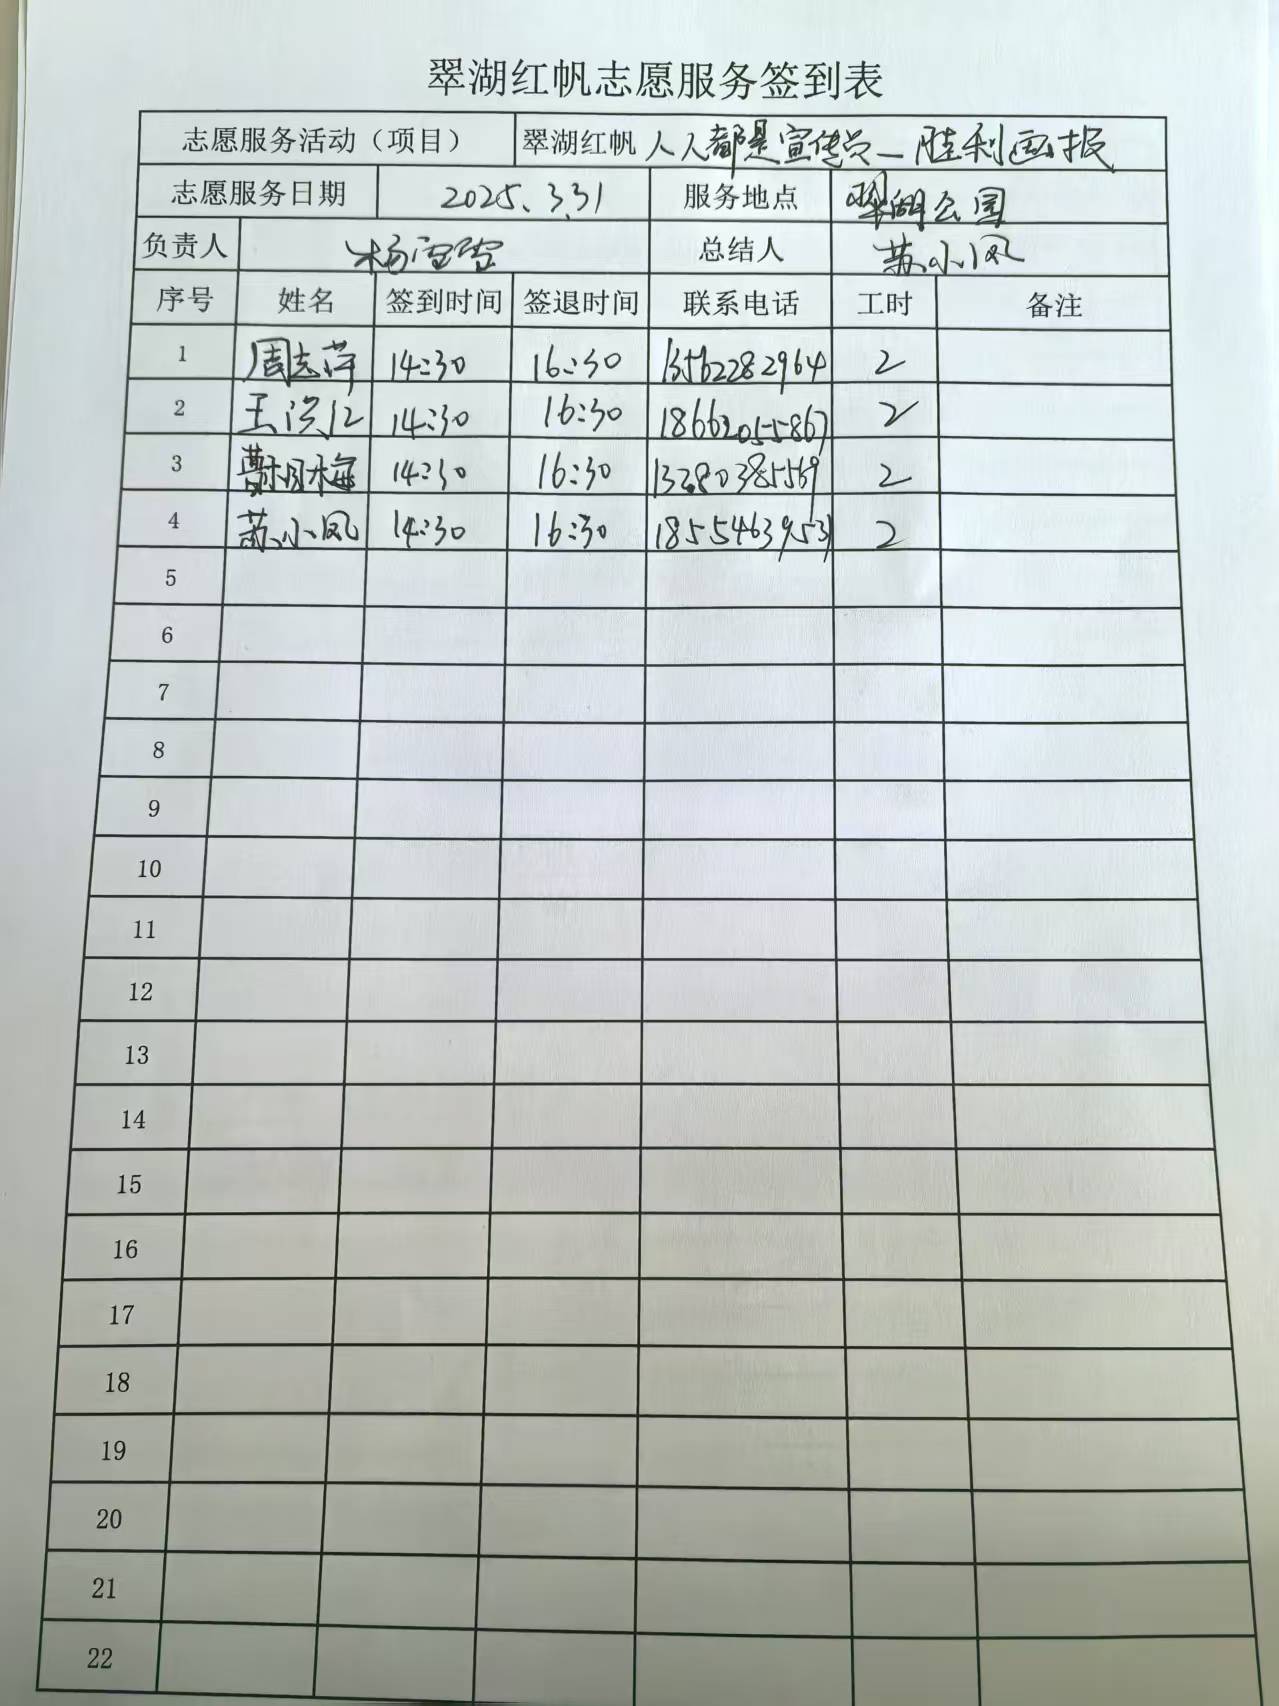 翠湖红帆志愿服务签到表
志愿服务活动（项目） 翠湖红帆 人人都是宣传员—胜利画报
志愿服务日期 2025.3.31 服务地点 翠湖公园
负责人 杨雪雪 总结人 苏小凤
序号 姓名 签到时间 签退时间 联系电话 工时 备注
1 周志萍 14:30 16:30 13562282964 2
2 王洪江 14:30 16:30 18662055867 2
3 14:30 16:30 13280385569 2
4 苏小凤 14:30 16:30 18554639531 2
5
6
7
8
9
10
11
12
13
14
15
16
17
18
19
20
21
22